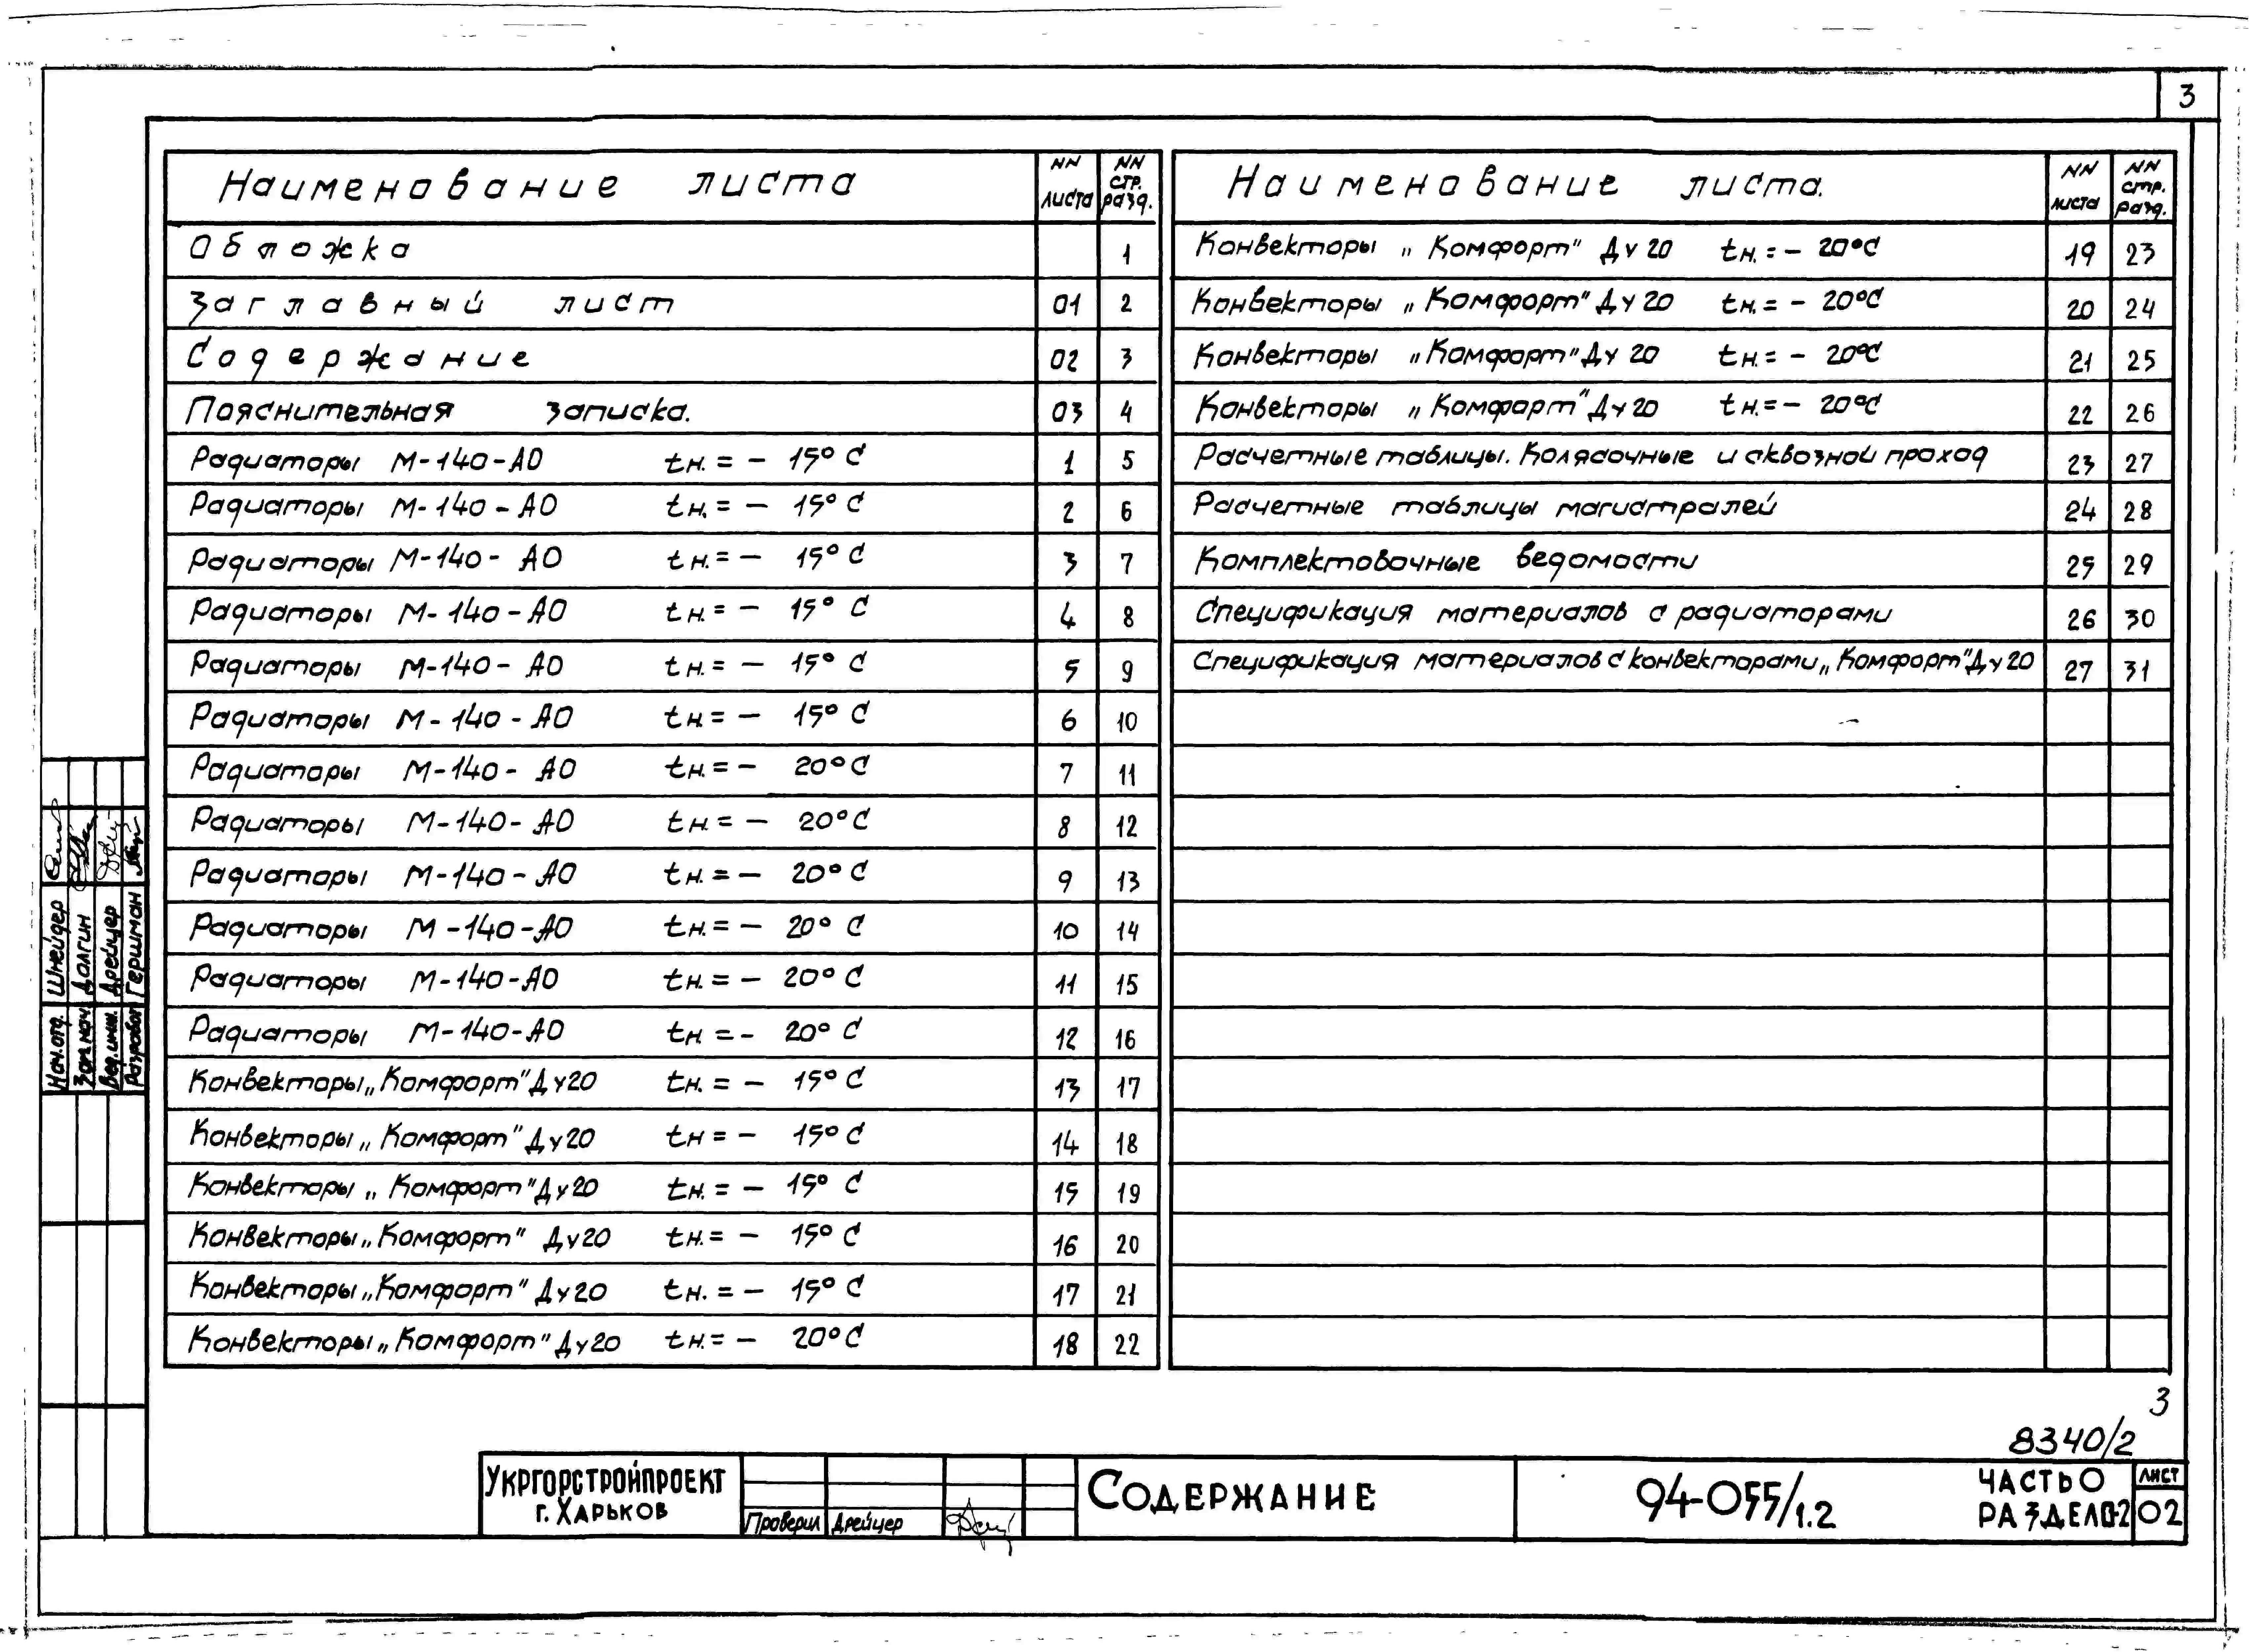 3
Наименование листа
NN листа
NN стр. разд.
Обложка 1
Заглавный лист 01 2
Содержание 02 3
Пояснительная записка. 03 4
Радиаторы М-140-АО tн. = - 15° С 1 5
Радиаторы М-140-АО tн. = - 15° С 2 6
Радиаторы М-140-АО tн. = - 15° С 3 7
Радиаторы М-140-АО tн. = - 15° С 4 8
Радиаторы М-140-АО tн. = - 15° С 5 9
Радиаторы М-140-АО tн = - 15° С 6 10
Радиаторы М-140-АО tн. = - 20° С 7 11
Радиаторы М-140-АО tн. = - 20° С 8 12
Радиаторы М-140-АО tн. = - 20° С 9 13
Радиаторы М-140-АО tн. = - 20° С 10 14
Радиаторы М-140-АО tн. = - 20° С 11 15
Радиаторы М-140-АО tн. = - 20° С 12 16
Конвекторы „Комфорт" Ду20 tн. = - 15° С 13 17
Конвекторы „Комфорт" Ду20 tн = - 15° С 14 18
Конвекторы „Комфорт" Ду20 tн. = - 15° С 15 19
Конвекторы „Комфорт" Ду20 tн. = - 15° С 16 20
Конвекторы „Комфорт" Ду20 tн. = - 15° С 17 21
Конвекторы „Комфорт" Ду20 tн. = - 20° С 18 22
Наименование листа.
NN листа
NN стр. разд.
Конвекторы „Комфорт" Ду20 tн. = - 20°С 19 23
Конвекторы „Комфорт" Ду20 tн. = - 20°С 20 24
Конвекторы „Комфорт" Ду20 tн. = - 20°С 21 25
Конвекторы „Комфорт" Ду20 tн. = - 20°С 22 26
Расчетные таблицы. Колясочные и сквозной проход 23 27
Расчетные таблицы магистралей 24 28
Комплектовочные ведомости 25 29
Спецификация материалов с радиаторами 26 30
Спецификация материалов с конвекторами „Комфорт" Ду20 27 31
Нач.отд. Шнейдер
Зам.нач. Долгин
Вед.инж. Дрейцер
Разработ Гершман
3
8340/2
Укргорстройпроект
г. Харьков
Проверил Дрейцер
Содержание
94-055/1.2
Часть 0
Раздел 0-2
лист
02